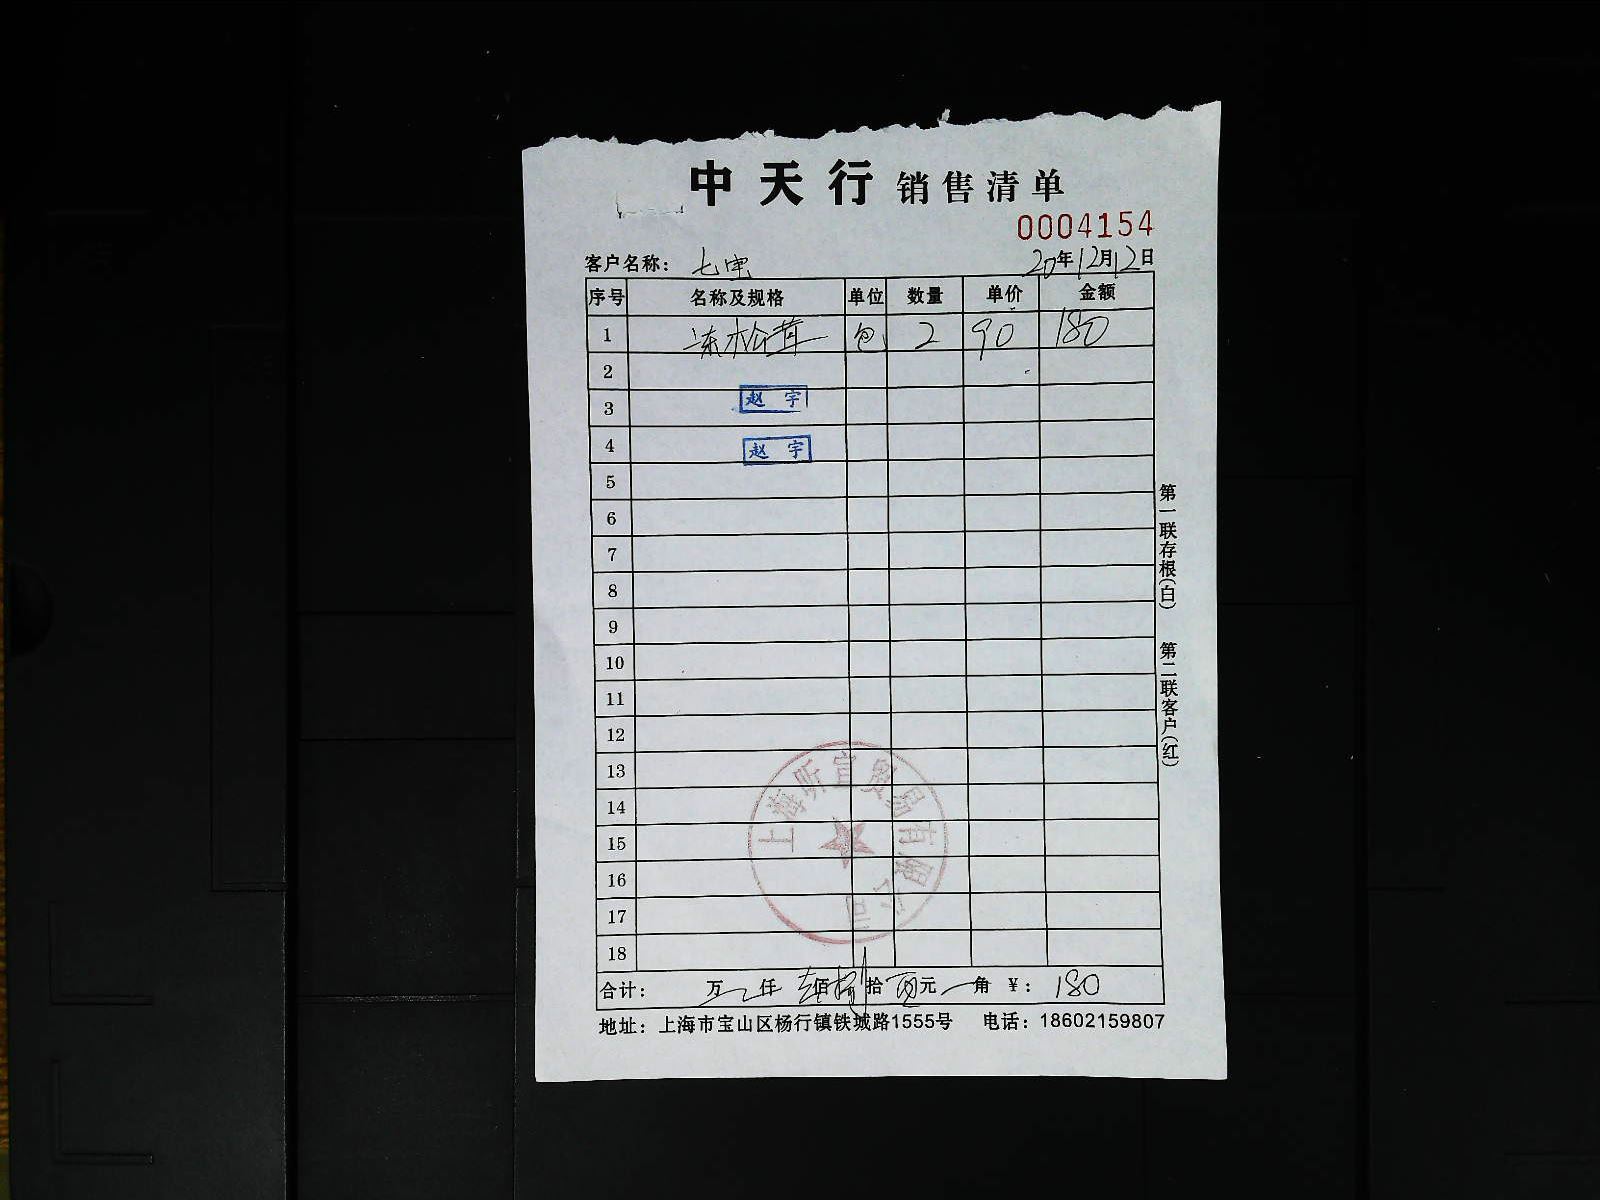 中天行 销售清单
0004154
客户名称： 七宝 20年12月12日
序号 名称及规格 单位 数量 单价 金额
1 冻松茸 包 2 90 180
2
3 赵 宇
4 赵 宇
5
6
7
8
9
10
11
12
13
14
15
16
17
18
上海昕宜贸易有限公司
合计： 万 仟 佰 拾 元 角 ￥： 180
地址：上海市宝山区杨行镇铁城路1555号 电话：18602159807
第一联存根(白) 第二联客户(红)